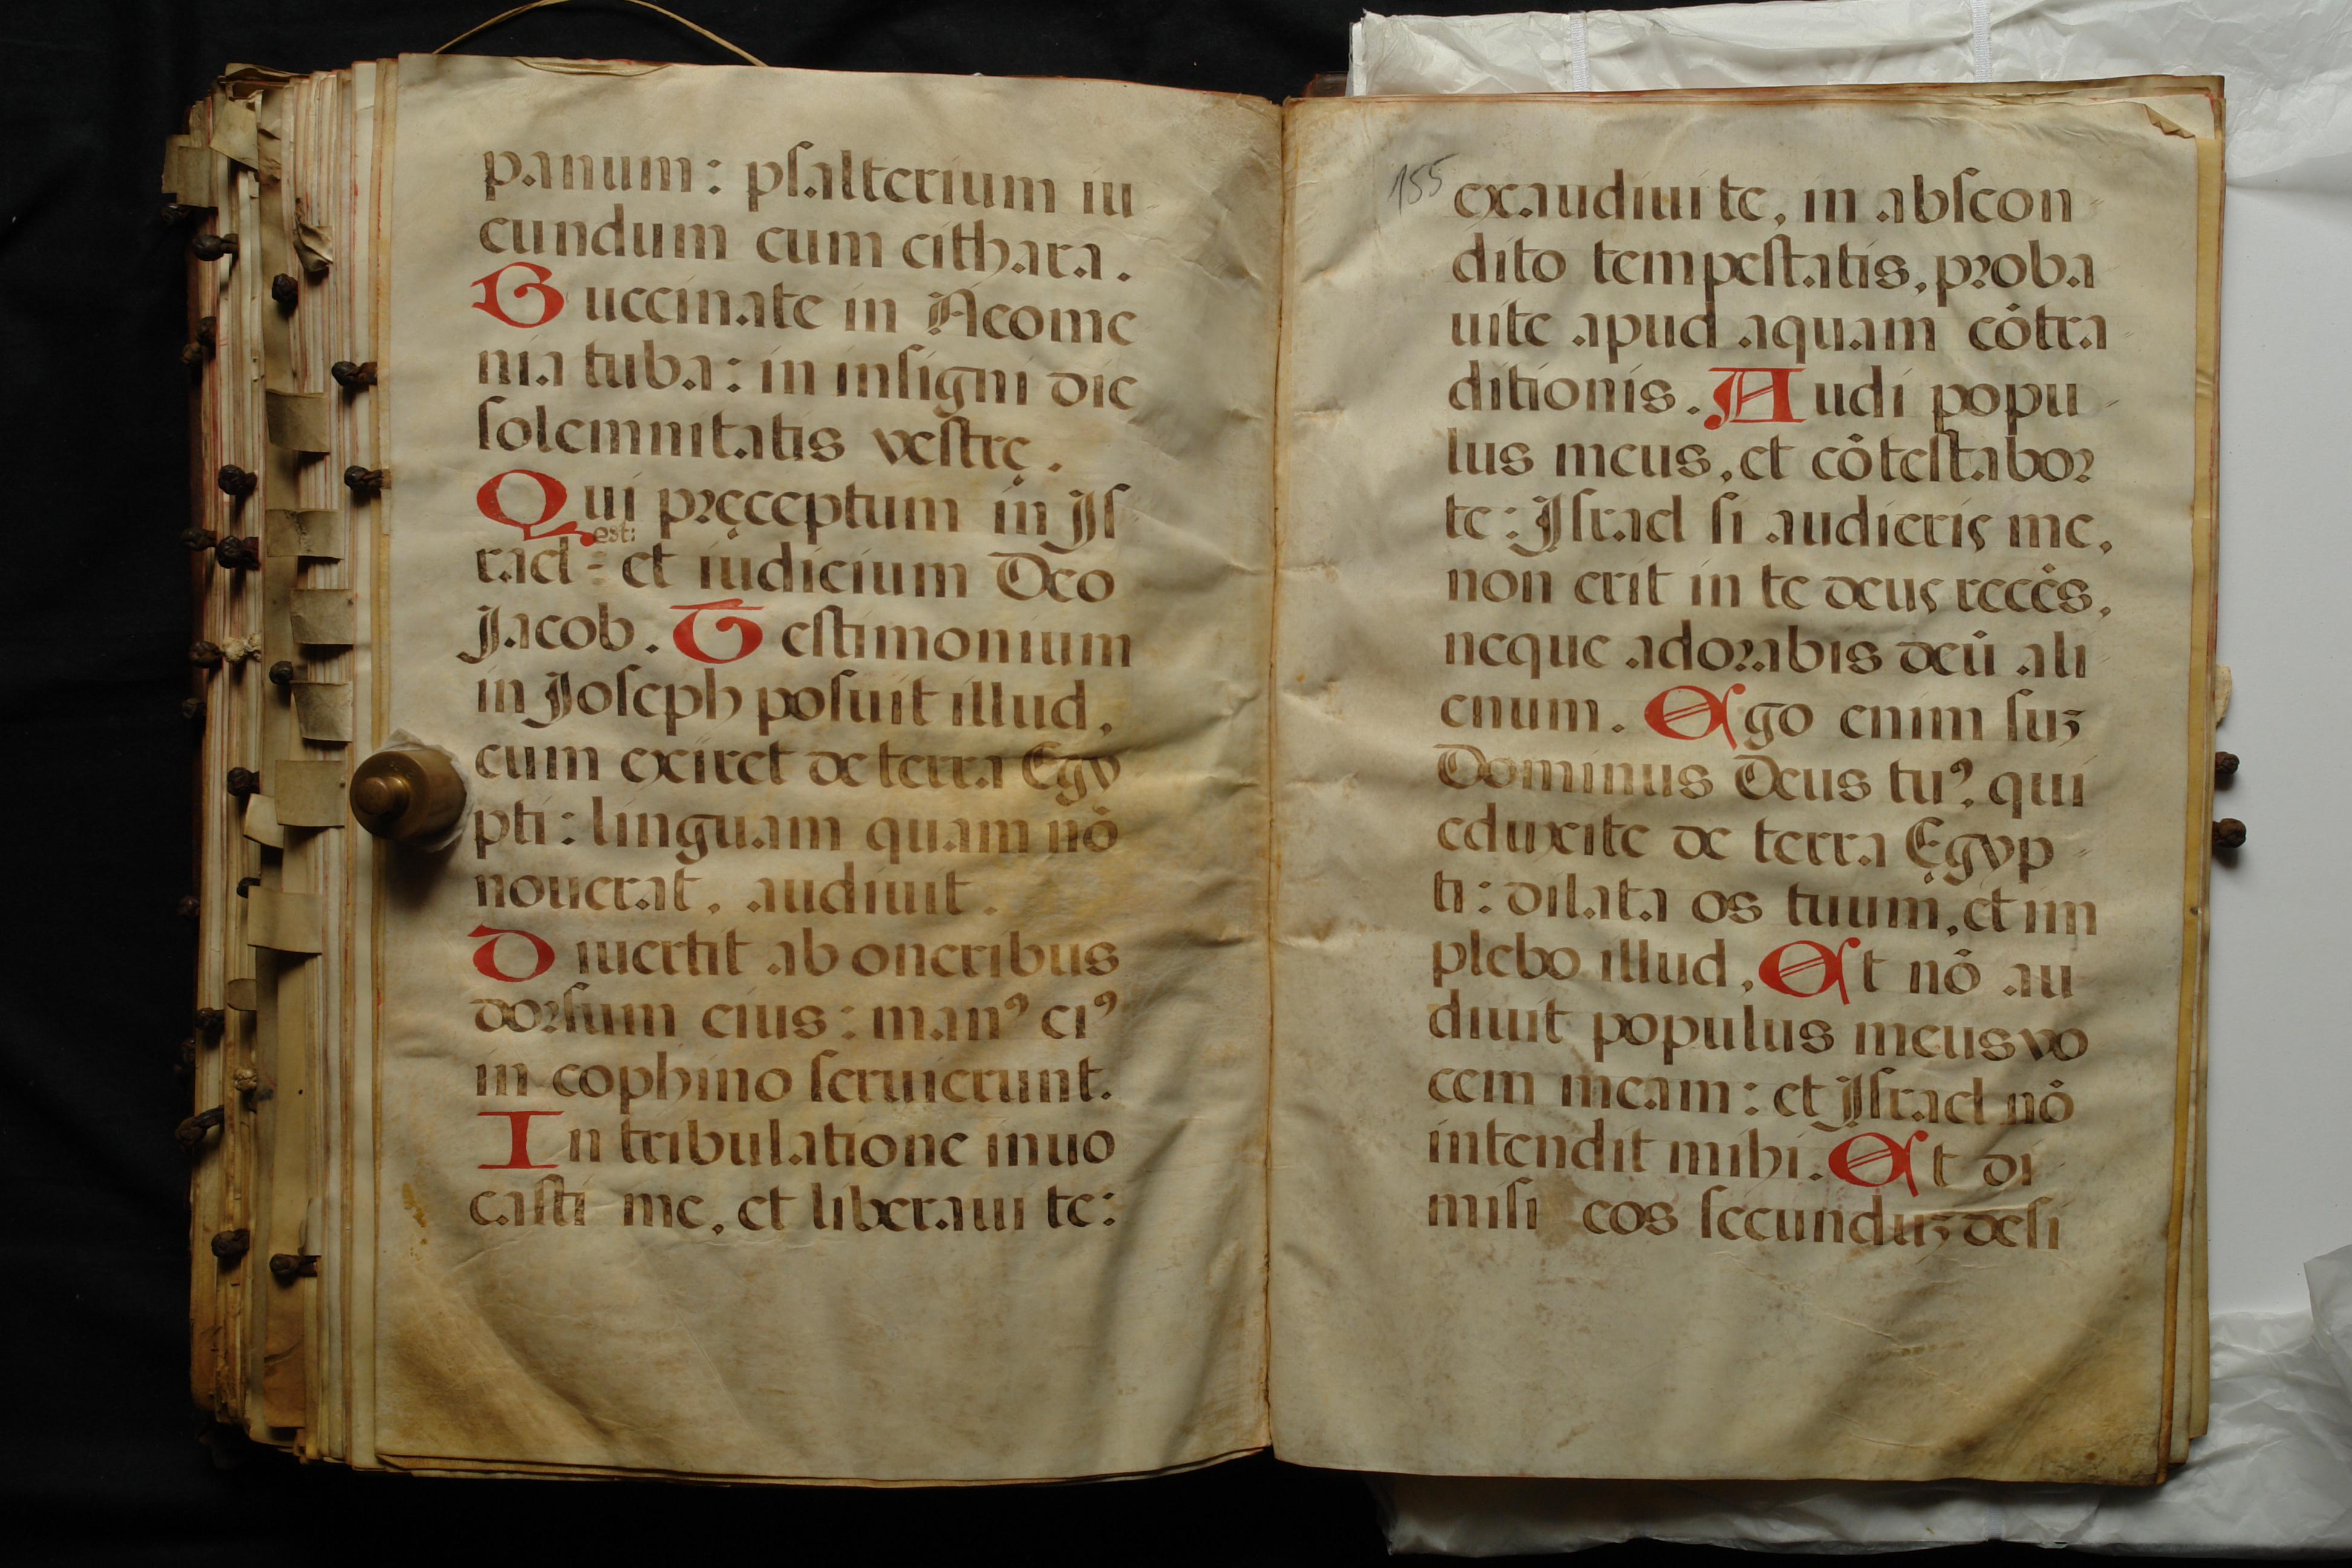 panum: pſalterium iu
cundum cum cithara.
Buccinate in Neome
nia tuba: in inſigni die
ſolemnitatis veſtrę.
Qui pręceptum in Iſ
est:
rael = et iudicium Deo
Jacob. Teſtimonium
in Joſeph poſuit illud,
cum exiret de terra Egy
pti: linguam quam nō
nouerat, audiuit.
Diuertit ab oneribus
dorſum eius: manꝰ eiꝰ
in cophino ſeruierunt.
In tribulatione inuo
caſti me, et liberaui te:
155
exaudiui te, in abſcon
dito tempeſtatis, proba
uite apud aquam cōtra
ditionis. Audi popu
lus meus, et cōteſtabor
te: Iſrael ſi audieris me,
non erit in te deus recēs,
neque adorabis deū ali
enum. Ego enim ſuʒ
Dominus Deus tuꝰ, qui
eduxite de terra Ęgyp
ti: dilata os tuum, et im
plebo illud. Et nō au
diuit populus meus vo
cem meam: et Iſrael nō
intendit mihi. Et di
miſi eos ſecunduʒ deſi